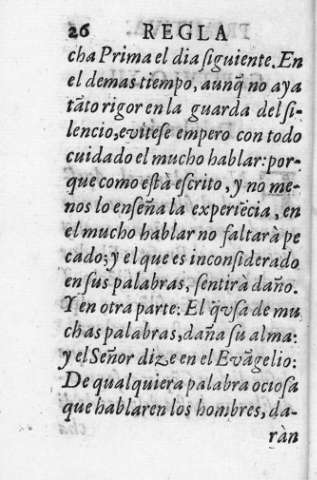 26 REGLA
cha Prima el dia ſiguiente. En
el demas tiempo, aunq̃ no aya
tãto rigor en la guarda del ſi-
lencio, eviteſe empero con todo
cuidado el mucho hablar: por-
que como eſtà eſcrito, y no me-
nos lo enſeña la experiẽcia, en
el mucho hablar no faltarà pe
cado; y el que es inconſiderado
en ſus palabras, ſentirà daño.
Y en otra parte: El q̃ vſa de mu
chas palabras, daña ſu alma:
y el Señor dize en el Evãgelio:
De qualquiera palabra ocioſa
que hablaren los hombres, da-
ràn